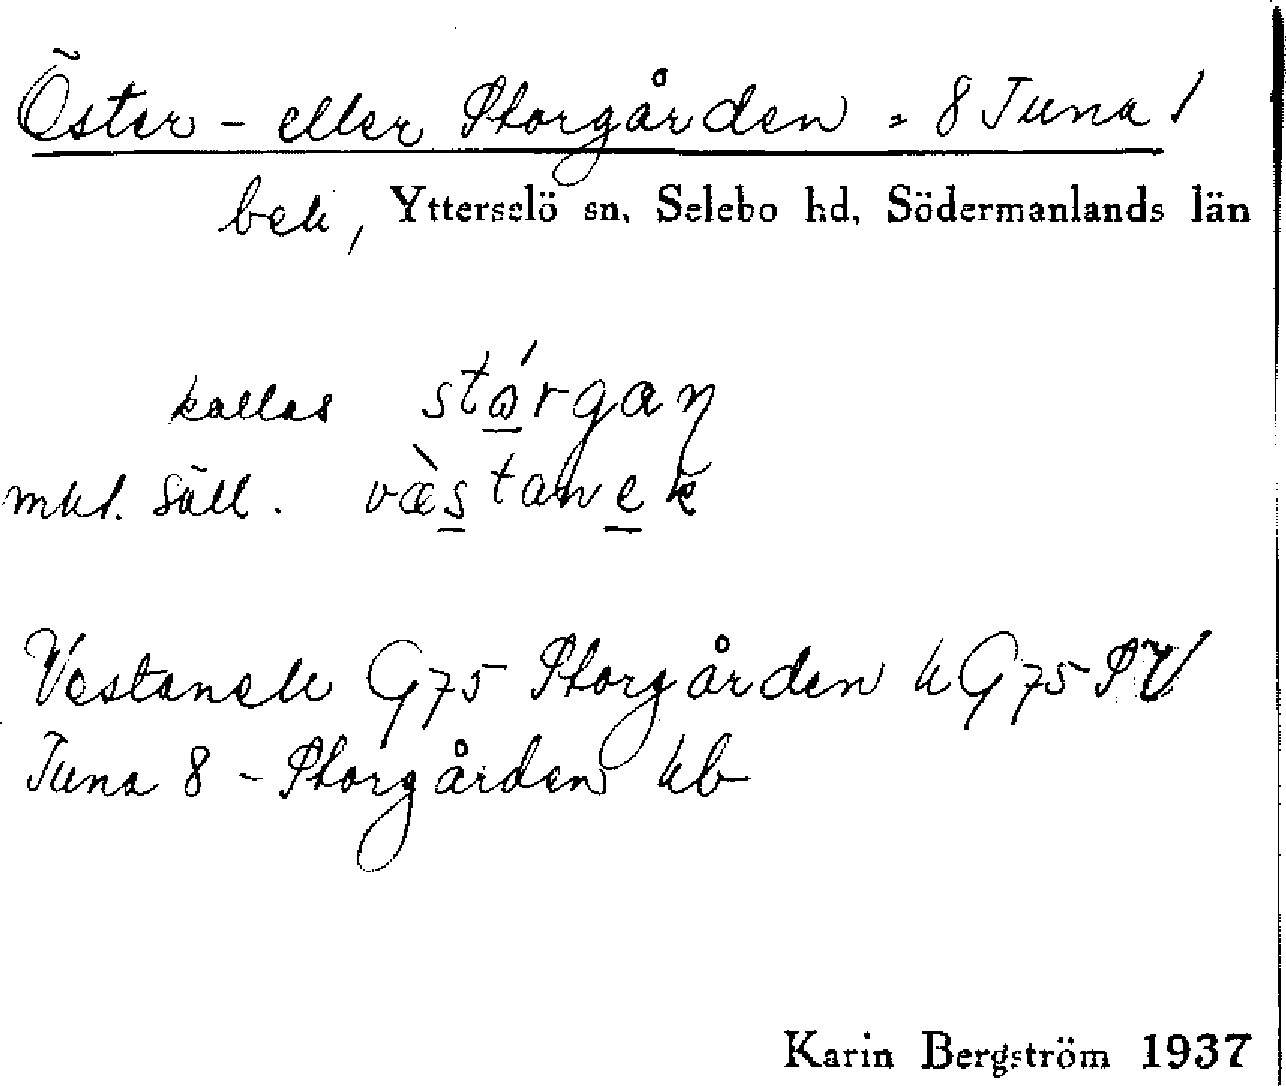 Öster- eller Storgården = 8 Tuna 1
bek, Ytterselö sn, Selebo hd, Södermanlands län
kallas stórgaɳ
mkt. säll. væ̀stanek
Vestanek G75 Storgården kG75
Tuna 8 - Storgården kb
Karin Bergström 1937